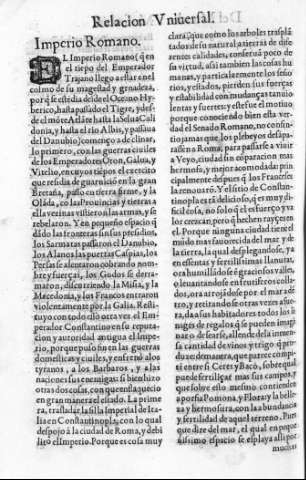 Relacion Vniuersal.
Imperio Romano.
DL Imperio Romano (q en
el tiẽpo del Emperador
Trajano llego a estar en el
colmo de su magestad y grandeza,
porq̃ se estẽdia desde el Oceano Hy
berico, hasta passado el Tigre, y des-
de el mõte Atlãte hasta la Selua Cali
donia, y hasta el rio Albis, y passaua
del Danubio) començo a declinar,
lo primero, con las guerras ciuiles
de los Emperadores Oton, Galua, y
Vitelio, en cuyos tiẽpos el exercito
que residia de guarnicion en la gran
Bretaña, passò en tierra firme, y la
Olãda, cõ las Prouincias y tierras a
ella vezinas vistieron las armas, y se
rebelaron. Y en pequeño espacio q̃
dãdo las fronteras sin sus presidios,
los Sarmatas passaron el Danubio,
los Alanos las puertas Caspias, los
Persas se alentaron cobrando nom-
bre y fuerças, los Godos se derra-
maron, discurriendo la Misia, y la
Macedonia, y los Francos entraron
violentamente por la Galia. Resti-
tuyo con todo ello otra vez el Em-
perador Constantino en su reputa-
cion y autoridad antigua el Impe-
rio, porque puso fin en las guerras
domesticas y ciuiles, y enfrenò a los
tyranos, a los Barbaros, y a las
naciones sus enemigas: si bien hizo
otras dos cosas, con que enflaquecio
en gran manera el estado. La prime
ra, trasladar la silla Imperial de Ita-
lia en Constantinopla, con lo qual
despojò à la ciudad de Roma, y debi
litò el Imperio. Porque es cosa muy
clara, que como los arboles trasplã
tados de su natural a tierras de dife-
rentes calidades, conseruã poco de
su virtud, assi tambien las cosas hu-
manas, y particularmente los seño
rios, y estados, pierden sus fuerças
y estabilidad con mudanças tan uio
lentas y fuertes: y este fue el motiuo
porque conociendo bien esta ver-
dad el Senado Romano, no consin-
tio jamas que los plebeyos desapa-
rassen a Roma, para passarse a viuir
a Veyo, ciudad sin cõparacion mas
hermosa, y mejor acomodada: prin
cipalmente despues q̃ los Franceses
la renouarõ. Y el sitio de Constanti-
nopla es tã delicioso, q̃ es muy di-
ficil cosa, no solo q̃ el esfuerço y va
lor crezcan, pero q̃ hechen rayzes en
el. Porque ninguna ciudad tiene el
mũdo mas fauorecida del mar y de
la tierra, la qual desplegandose, ya
en essentas y fertilissimas llanuras,
ora humillãdose en graciosos valles,
o leuantandose en frutiferos colla-
dos, ora arrojãdose por el mar a den
tro, y retirandose otras vezes a fue-
ra, da a sus habitadores todos los li
nages de regalos q̃ se pueden imagi
nar o dessear, allende de la inmen-
sa cantidad de vinos y trigo que p-
duze: de manera, que parece compi-
ten entre si Ceres y Baco, sobre qual
puede fertilizar mas sus campos, y
que sobre esto mesmo contienden
a porfia Pomona, y Flora y la belle-
za y hermosura, con la abundancia
y fertilidad de aquel terreno. Pues
que dire del mar, el qual en peque
ñissimo espacio se esplaya assi por
muchas